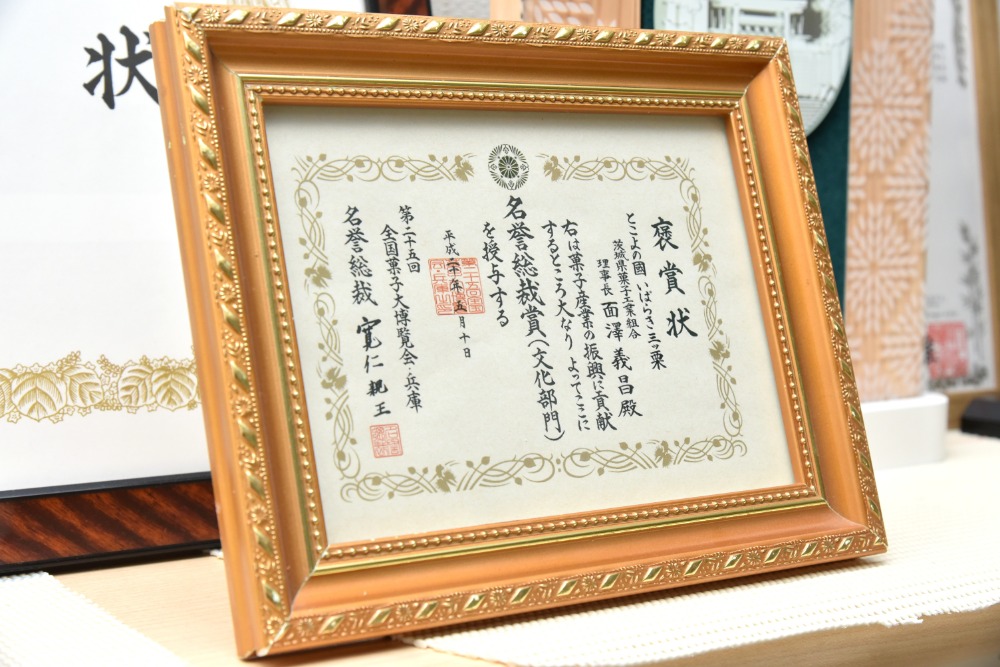 褒賞状
とこよの國 いばらき三ッ栗
茨城県菓子工業組合
理事長 面澤義昌殿
右は菓子産業の振興に貢献
するところ大なり よってここに
名誉総裁賞(文化部門)
を授与する
平成二十年五月十日
第二十五回
全国菓子大博覧会・兵庫
名誉総裁 寛仁親王
状